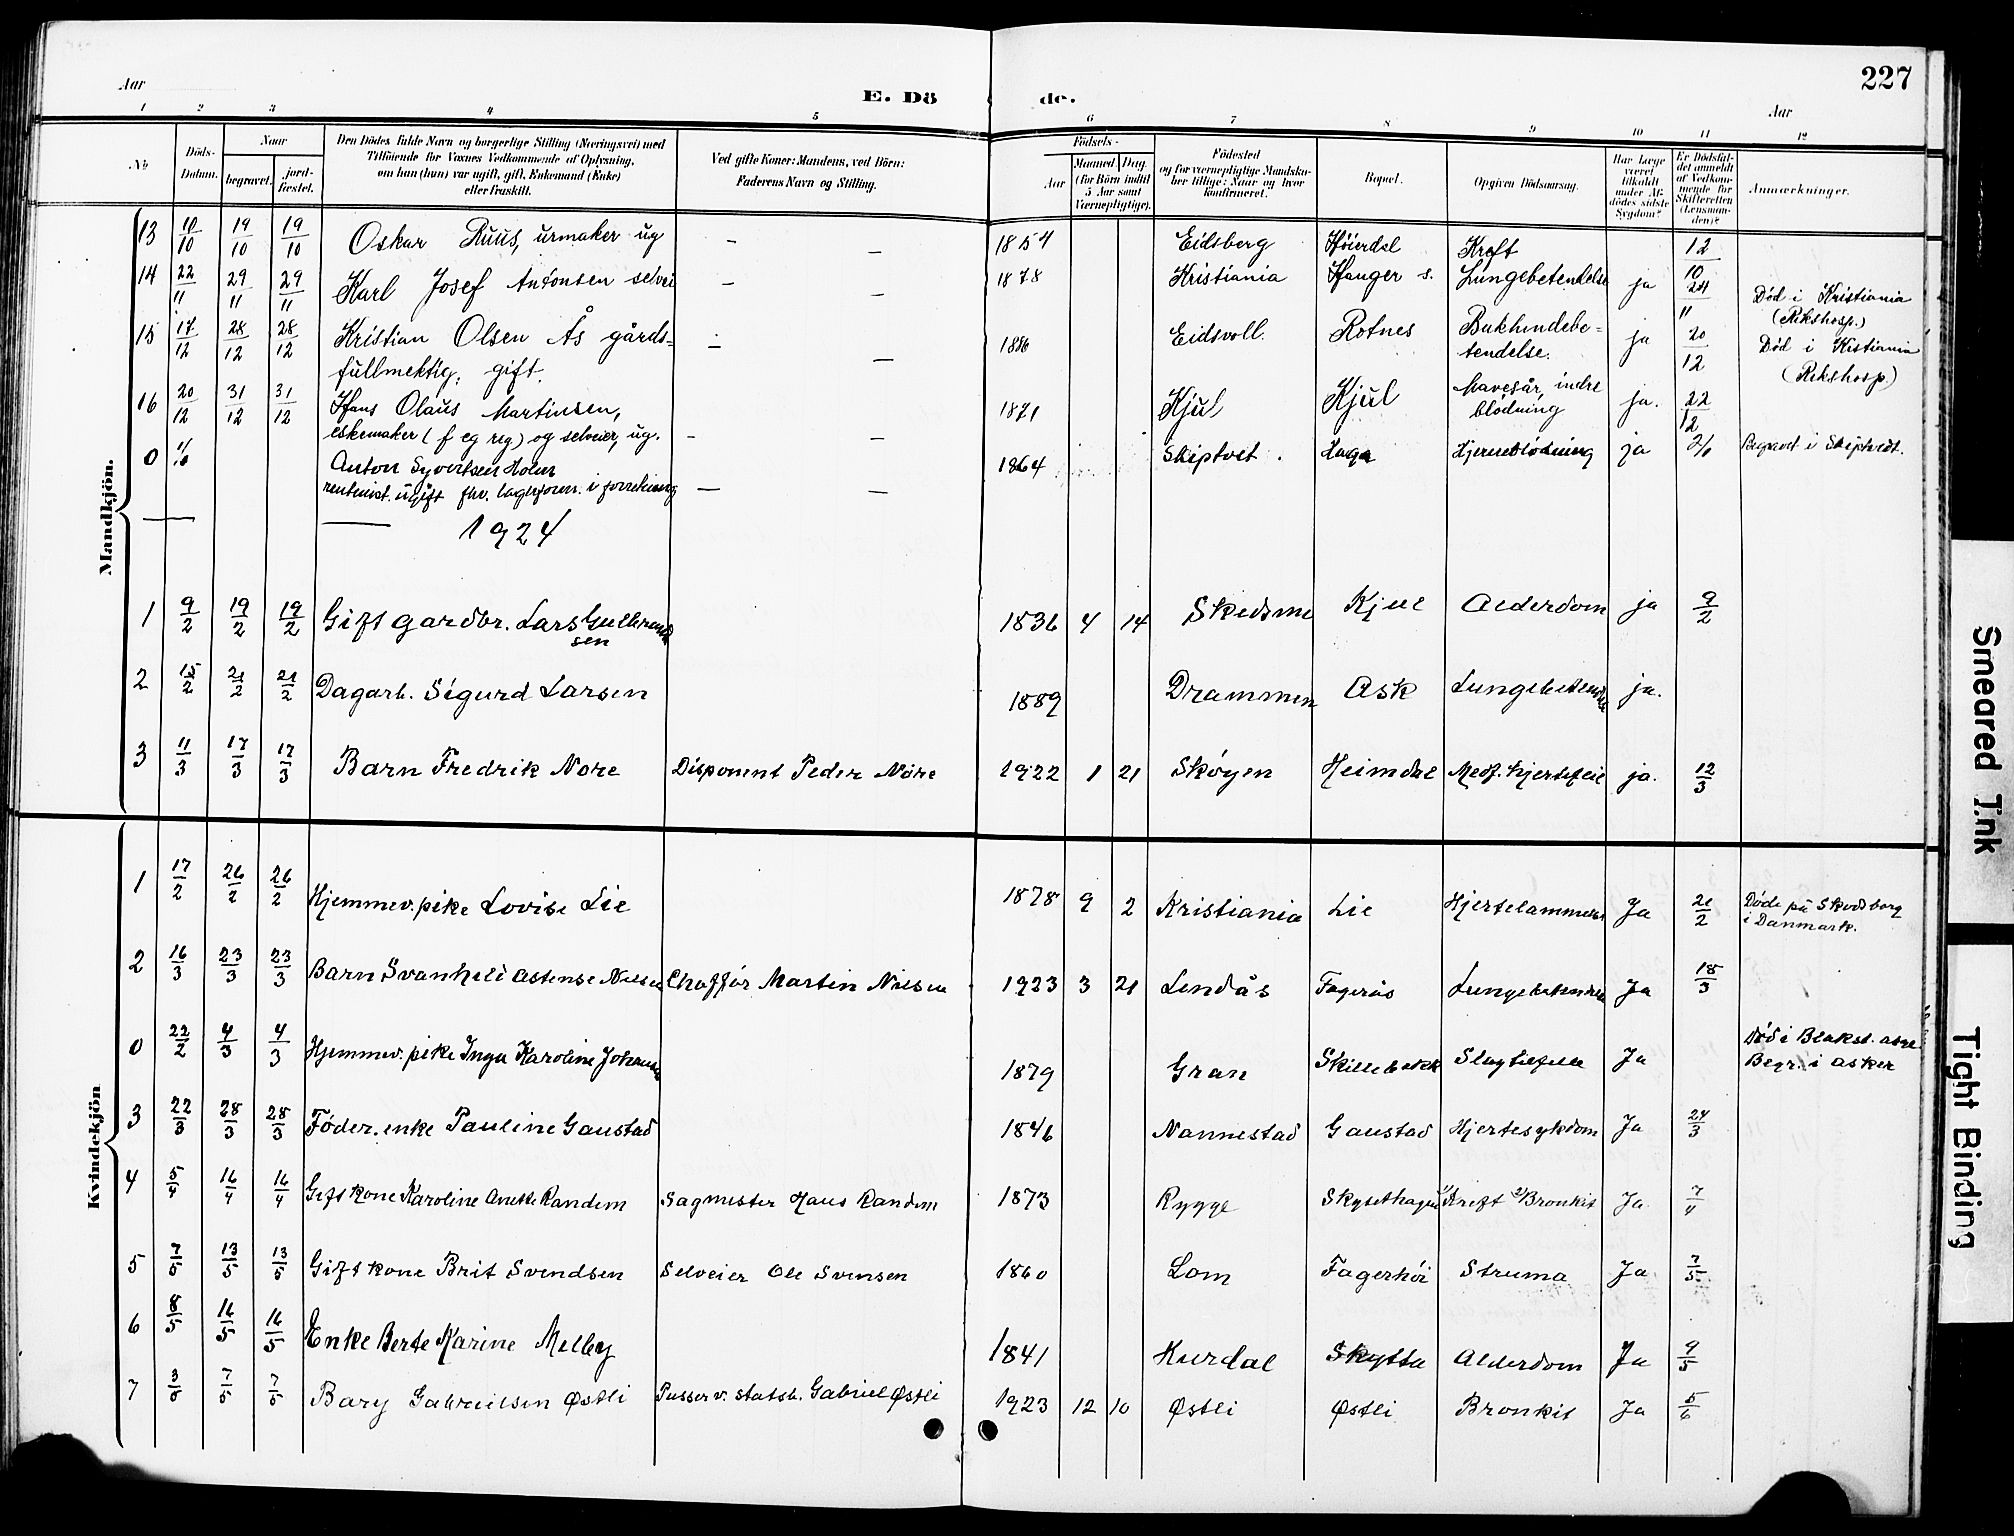 227
Aar
E. Dö
de.
Aar
1 2 3 4 5 6 7 8 9 10 11 12
No
Döds-Datum.
Naar
begravet.
jord-fæstet.
Den Dödes fulde Navn og borgerlige Stilling (Næringsvei) med
Tilföiende for Voxnes Vedkommende af Oplysning,
om han (hun) var ugift, gift, Enkemand (Enke)
eller fraskilt.
Ved gifte Koner: Mandens, ved Börn:
Faderens Navn og Stilling.
Födsels-
Aar
Maaned
Dag.
(for Börn indtil
5 Aar samt
Værnepligtige).
Födested
og for værnepligtige Mandska-
ber tillige: Naar og hvor
konfirmeret.
Bopæl.
Opgiven Dödsaarsag.
Har læge
været
tilkaldt
under Af-
dödes sidste
Sygdom?
Er Dödsfal-
det anmeldt
af Vedkom-
mende for
Skifteretten
(Lensman-
den)?
Anmærkninger.
Mandkjön.
13 10/10 19/10 19/10 Oskar Ruus, urmaker ug — — 1854 Eidsberg Höierdal Kreft 12/10
14 22/11 29/11 29/11 Karl Josef Antonsen selvei — — 1878 Kristiania Hauger s. Lungebetendelse ja 24/11 Död i Kristiania
(Rikshosp.)
15 17/12 28/12 28/12 Kristian Olsen Ås gårds- — — 1886 Eidsvoll. Rotnes Bukhindebe- ja 20/12 Död i Kistiania
fullmektig, gift. tendelse. (Rikshosp.)
16 20/12 31/12 31/12 Hans Olaus Martinsen, 1871 Kjul Kjul Mavesår, indre ja. 22/12
eskemaker (f eg reg) og selveier, ug. — — blödning
0 Anton Syvertsen Holm 1864 Skiptvet. Haga Hjerneblödning ja Begravet i Skiptvedt.
rentenist. ugift fhv. i forretning — —
1924
1 9/2 19/2 19/2 Gift gardbr. Lars Gulbrand 1836 4 14 Skedsmo Kjul Alderdom ja 9/2
sen
2 15/2 21/2 21/2 Dagarb. Sigurd Larsen 1889 Drammen Ask Lungebetendelse ja.
3 11/3 17/3 17/3 Barn Fredrik Nore Disponent Peder Nore 1922 1 21 Skøyen Heimdal Medf. hjertefeil ja. 12/3
Kvindekjön
1 17/2 26/2 26/2 Hjemmev. pike Lovise Lie 1878 9 2 Kristiania Lie Hjertelammelse Ja 21/2 Døde på Skodsborg
i Danmark.
2 16/3 23/3 23/3 Barn Svanhild Astense Nilsen Chafför Martin Nilsen 1923 3 21 Lendås Fagerås Lungebetendelse Ja 18/3
0 22/2 4/3 4/3 Hjemmev. pike Inga Karoline Johansen 1879 Gran Skillebekk Slagtilfelle Ja Död i Blakst. asyl
Begr. i Asker
3 22/3 28/3 28/3 Föder. enke Pauline Gaustad 1846 Nannestad Gaustad Hjertesykdom Ja 24/3
4 5/4 16/4 16/4 Gift kone Karoline Anette Randem Sagmester Hans Randem 1873 Rygge 1) Kreft 2) Bronkit Ja 7/4
5 7/5 13/5 13/5 Gift kone Brit Svendsen Selveier Ole Svensen 1860 Lom Fagerhöi Struma Ja 7/5
6 8/5 16/5 16/5 Enke Berte Karine Melby 1841 Hurdal Skytta Alderdom Ja 9/5
7 3/5 7/5 7/5 Bary Gabrielsen Østli Pusser v. statsb. Gabriel Østli 1923 12 10 Østli Østli Bronkit Ja 5/6
Smeared Ink
Tight Binding